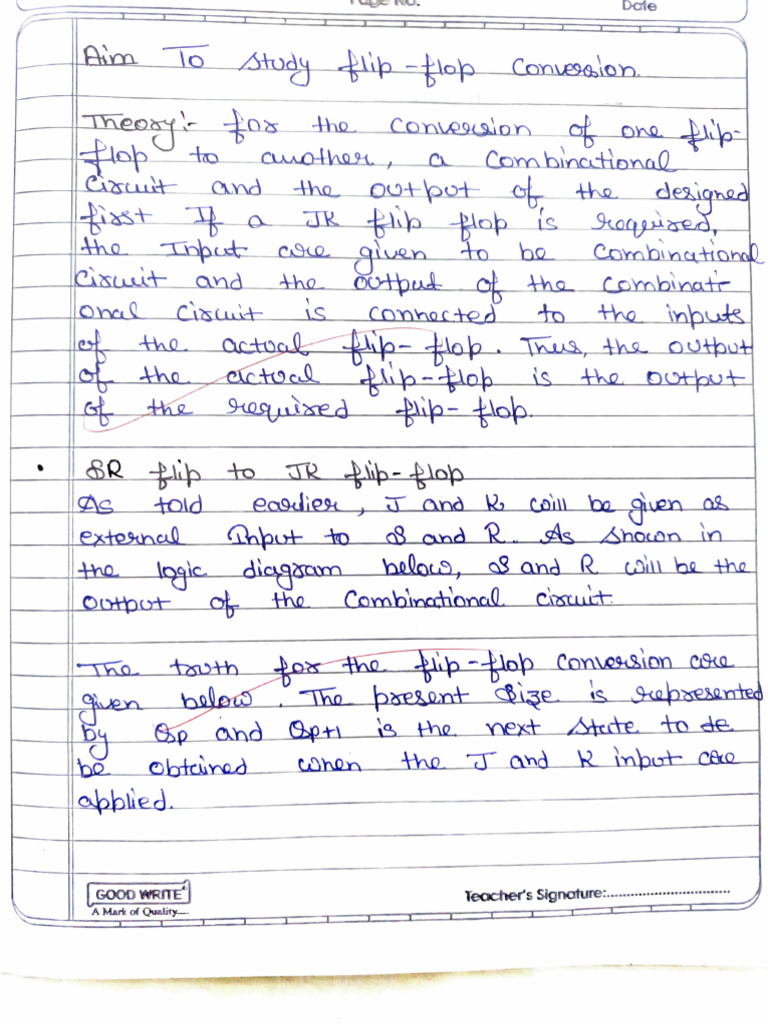 Page No.
Date
Aim To study flip-flop conversion.
Theory:- for the conversion of one flip-
flop to another, a combinational
circuit and the output of the designed
first If a JK flip flop is required,
the Input are given to be combinational
circuit and the output of the combinati-
onal circuit is connected to the inputs
of the actual flip-flop. Thus, the output
of the actual flip-flop is the output
of the required flip-flop.
• SR flip to JK flip-flop
As told earlier, J and K will be given as
external Input to S and R. As shown in
the logic diagram below, S and R will be the
output of the combinational circuit.
The truth for the flip-flop conversion are
given below. The present size is represented
by Qp and Qp+1 is the next state to be
be obtained when the J and K input are
applied.
GOOD WRITE
A Mark of Quality....
Teacher's Signature:...............................